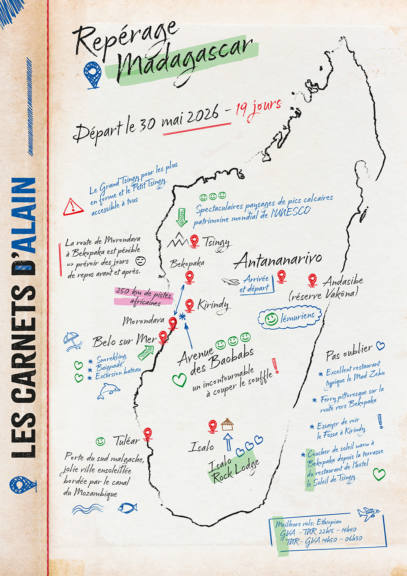 Repérage
Madagascar
Départ le 30 mai 2026 - 19 jours
LES CARNETS D'ALAIN
Le Grand Tsingy pour les plus
en forme et le Petit Tsingy
accessible à tous
Spectaculaires paysages de pics calcaires
patrimoine mondial de l'UNESCO
La route de Morondava
à Bekopaka est pénible
prévoir des jours
de repos avant et après.
Tsingy
Bekopaka
Antananarivo
Arrivée
et départ
Andasibe
(réserve Vakôna)
lémuriens
250 km de pistes
africaines
Kirindy
Morondava
Belo sur Mer
Snorkeling
Baignade
Excursion bateau
Avenue
des Baobabs
un incontournable
à couper le souffle !
Pas oublier
Excellent restaurant
typique le Mad Zebu
Ferry pittoresque sur la
route vers Bekopaka
Essayer de voir
le Fossa à Kirindy
Coucher de soleil
Bekopaka depuis la terrasse
du restaurant de l'hôtel
le Soleil de Tsingy
Tuléar
Porte du sud malgache,
jolie ville ensoleillée
bordée par le canal
du Mozambique
Isalo
Isalo
Rock Lodge
Meilleurs vols: Ethiopian